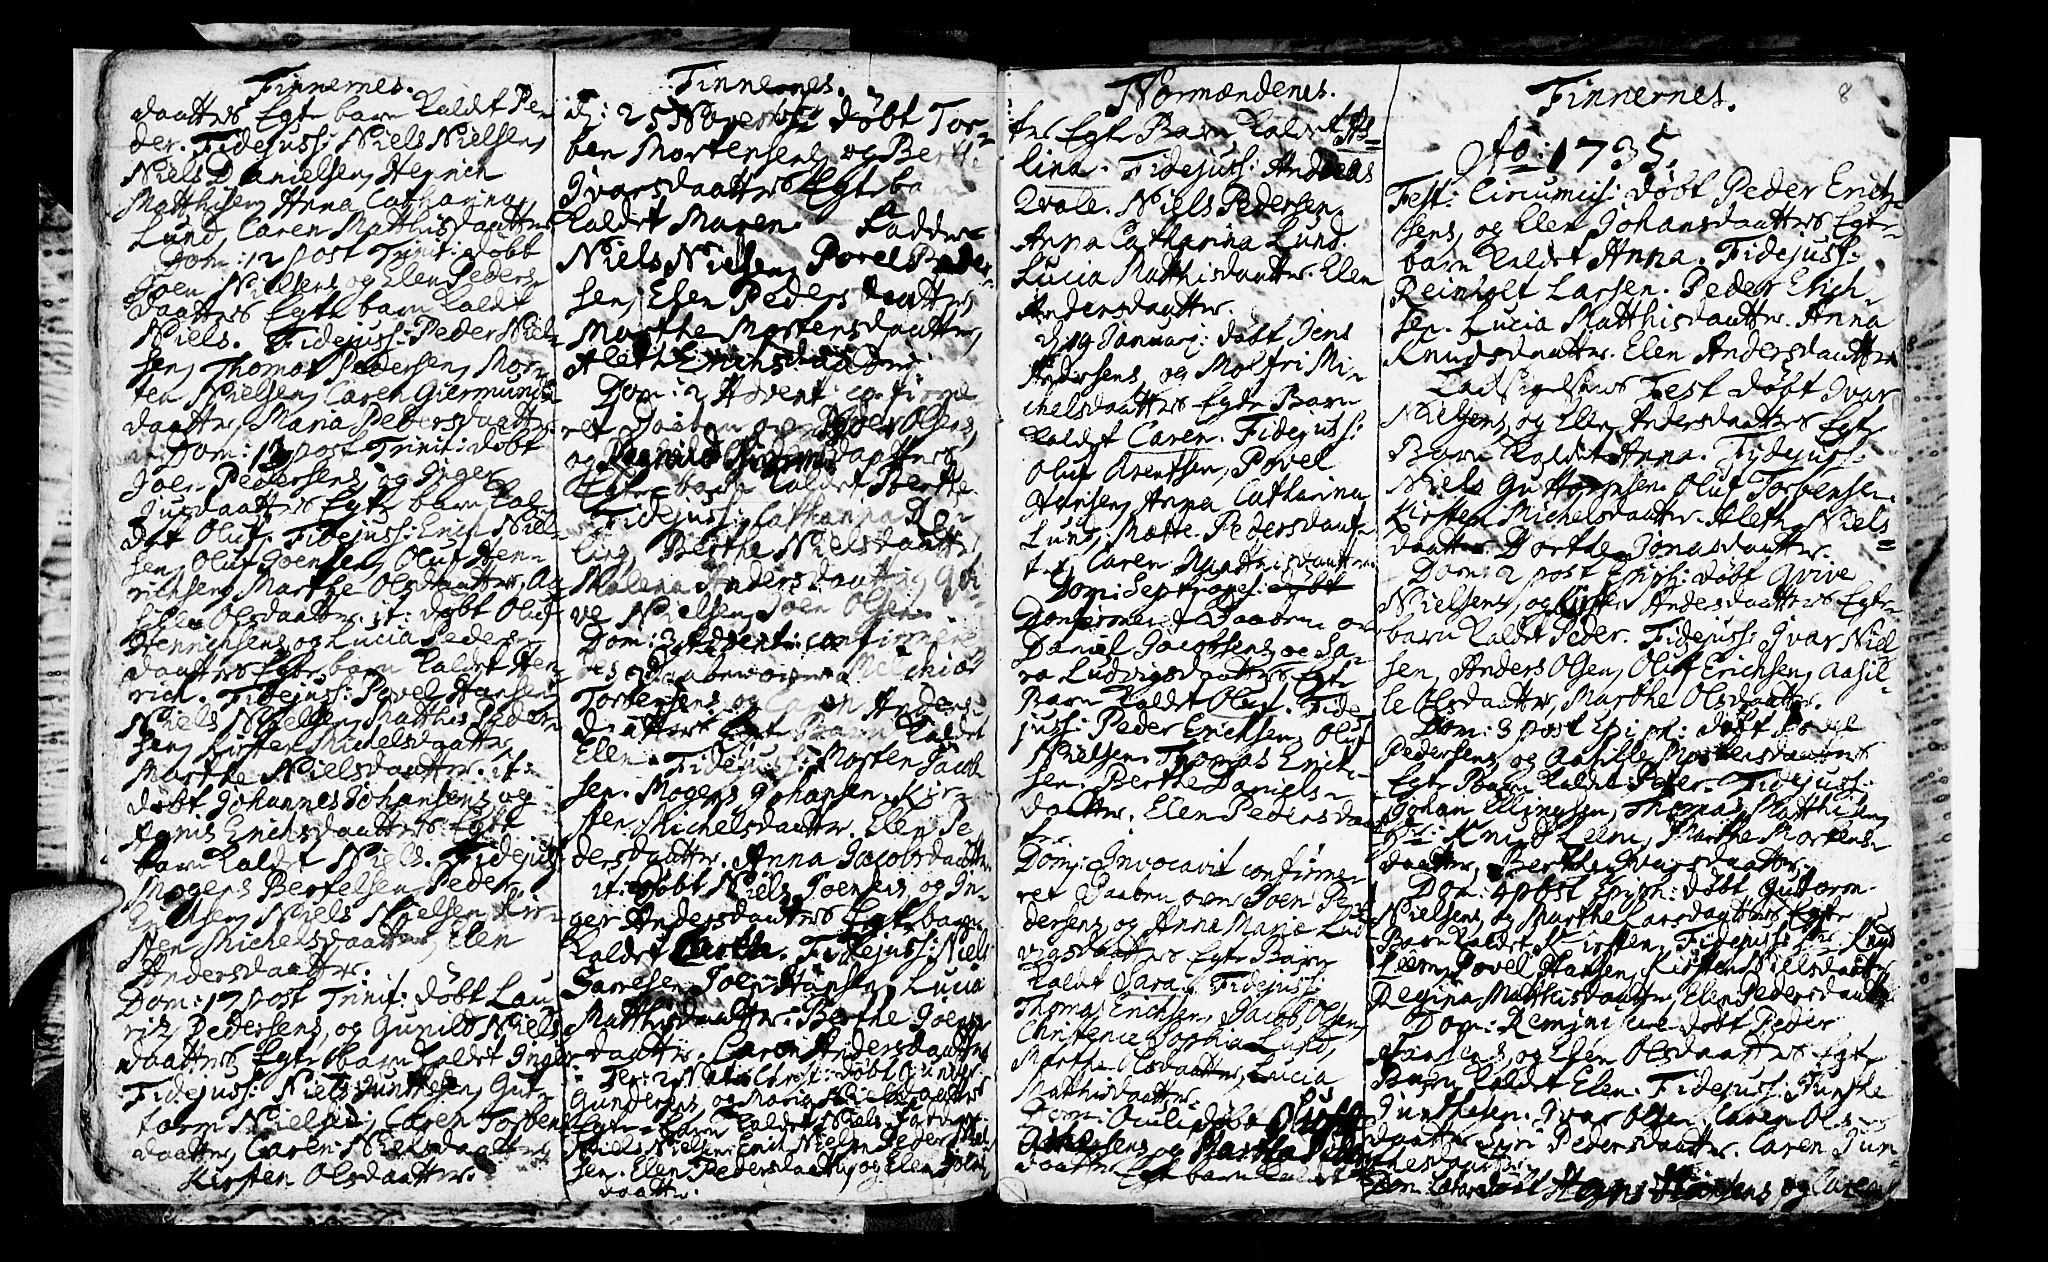 Finnernes.
daatters Egte barn kaldet Pe-
der. Fidejuss: Niels Nielsen,
Niels Danielsen, Henrich
Matthisen, Anna Catharina
Lund, Caren Matthisdaatter
Dom: 12 post Trinit: döbt
Joen Nielsens, og Elen Peders
daatters Egte barn kaldet
Niels. Fidejuss: Peder Niel-
sen, Thomas Pedersen, Mor-
ten Nielsen, Caren Giermunds
daatter, Maria Pedersdaatter.
Dom: 13 post Trinit: döbt
Joen Pedersens, og Inger
daatters Egte barn kal-
det Oluf. Fidejuss: Erich Niel-
sen, Oluf Joensen, Oluf Hen-
richsen, Marthe Olsdaatter, Aa-
sille Olsdaatter. it: döbt Oluf
Henrichsens, og Lucia Peders-
daatters Egte barn kaldet Hen-
rich. Fidejuss: Povel Hansen,
Niels Nielsen, Matthis Peder-
sen, Kirsten Michelsdaatter,
Marthe Nielsdaatter. it:
döbt Johannes Johansens, og
Erichsdaatters Egte
barn kaldet Niels. Fidejuss:
Mogens Bertelsen, Peder
Niels Nielsen, Kir-
sten Michelsdaatter, Elen
Andersdaatter.
Dom: 17 post Trinit: döbt Lau-
ritz Pedersens, og Gunild Niels
daatters Egte barn kaldet Inger
Fidejuss: Niels Gutt
torm Nielsen, Caren Torbens
daatter, Caren Nielsdaatter,
Kirsten Olsdaatter.
Finnernes.
d: 25 Novembr: döbt Tor-
ben Mortensens, og Berthe
Ivarsdaatters Egte ba
kaldet Maren. Fadder-
Niels Nielsen, Povel Peder-
sen, Elsen Peders daatter,
Marthe Mortensdaatter,
Aleth Erichsdaatter.
Dom: 2 Advent: confirme
ret Daaben over Joen Olsens,
og
Egte barn kaldet Berthe.
Fidejuss: Catharina
ling, Berthe Nielsdaatter,
Malena Andersdaatter, Qvi-
ve Nielsen, Joen Olsen.
Dom: 3 Advent: confirme
Daaben over Melchior
Torbensens, og Caren Anders-
daatters Egte Barn kaldet
Elen. Fidejuss: Morten Jacob
sen. Mogens Johansen. Kir-
sten Michelsdaatter. Elen Pe
dersdaatter. Anna Jacobsdaatter.
it: döbt Niels Joensens, og In-
ger Andersdaatters Egte barn
kaldet Fidejuss: Niels
Joen Hansen, Lucia
Matthisdaatter. Berthe Joens-
daatter. Caren Andersdaatter
Fer: 2 Nat: Christ: döbt Gunder
Gundersens, og Maria Nielsdaatters
Egte barn kaldet Niels.
Niels Nielsen. Erich Nielsen. Peder Niel
sen. Elen Pedersdaatter, og Elen Joens
daatter.
Normændenes.
ters Egte Barn kaldet
lina. Fidejuss: Andreas
Qvale. Niels Pedersen.
Anna Catharina Lund.
Lucia Matthisdaatter. Elen
Andersdaatter.
d: 19 Januarj: döbt Jens
Andersens, og Molfri Mi-
chelsdaatters Egte Barn
kaldet Caren. Fidejuss:
Oluf Arentsen, Povel
Hansen, Anna Catharina
Lund, Mætte Pedersdaat-
ter, Caren Matthisdaatter.
Dom: Septuages:
Confirmeret Daaben over
Daniel Jacobsens, og Sa-
ra Ludvigsdaatters Egte
Barn kaldet Oluf. Fide-
juss: Peder Erichsen, Oluf
Nielsen. Thomas Erich-
sen. Berthe Daniels-
daatter. Elen Pedersdaat
ter.
Dom: Invocavit confirme-
ret Daaben over Joen Pe-
dersens, og Anne Marie Lud-
vigsdaatters Egte Barn
kaldet Sara. Fidejuss:
Thomas Erichsen, Jacob Olsen,
Christence Sophia Lund,
Marthe Olsdaatter, Lucia
Mathisdaatter.
Dom: Oculi döbt
og Martha
daatters Egte barn kaldet
Finnernes.
8
Ao: 1735.
Fest: Circumcis: döbt Peder Erich-
sens, og Elen Johansdaatters Egte-
barn kaldet Anna. Fidejuss:
Reinholt Larsen. Peder Erich-
sen. Lucia Matthisdaatter. Anna
Knudsdaatter. Elen Andersdaatter
Fest döbt Ivar
Nielsens, og Elen Andersdaatters Egte
Barn kaldet Anna. Fidejuss:
Niels Guttormsen. Oluf Torbensen.
Kirsten Michelsdaatter. Aleth Niels-
daatter. Dorthe Jonasdaatter.
Dom: 2 post Epiph: döbt Qvive
Nielsens, og Andersdaatters Egte-
barn kaldet Peder. Fidejuss: Ivar Niel
sen, Anders Olsen, Oluf Erichsen, Aasil-
le Olsdaatter, Marthe Olsdaatter.
Dom: 3 post Epiph: döbt Povel
Pedersens, og Aasille Mortensdaatters
Egte Barn kaldet Peder. Fidejuss:
Johan Ellingsen, Thomas Matthisen,
Hr: Knud Leem, Marthe Mortens-
daatter, Berthe Ivarsdaatter.
Dom: 4 post Epiph: döbt Guttorm
Nielsens, og Marthe Larsdaatters Egte
Barn kaldet Kirsten. Fidejuss: Hr: Knud
Leem, Povel Hansen, Kirsten Nielsdaatter,
Regina Matthisdaatter, Elen Pedersdaatter.
Dom: Reminiscere döbt Peder
Hansens, og Elen Olsdaatters Egte
Barn kaldet Elen. Fidejuss: Junthe
Junthesen. Ivar Olsen. Caren Ols-
daatter. Pedersdaatter. Caren Jun-
thesdaatter.
Dom: Lætare döbt Hans Hansens, og Caren